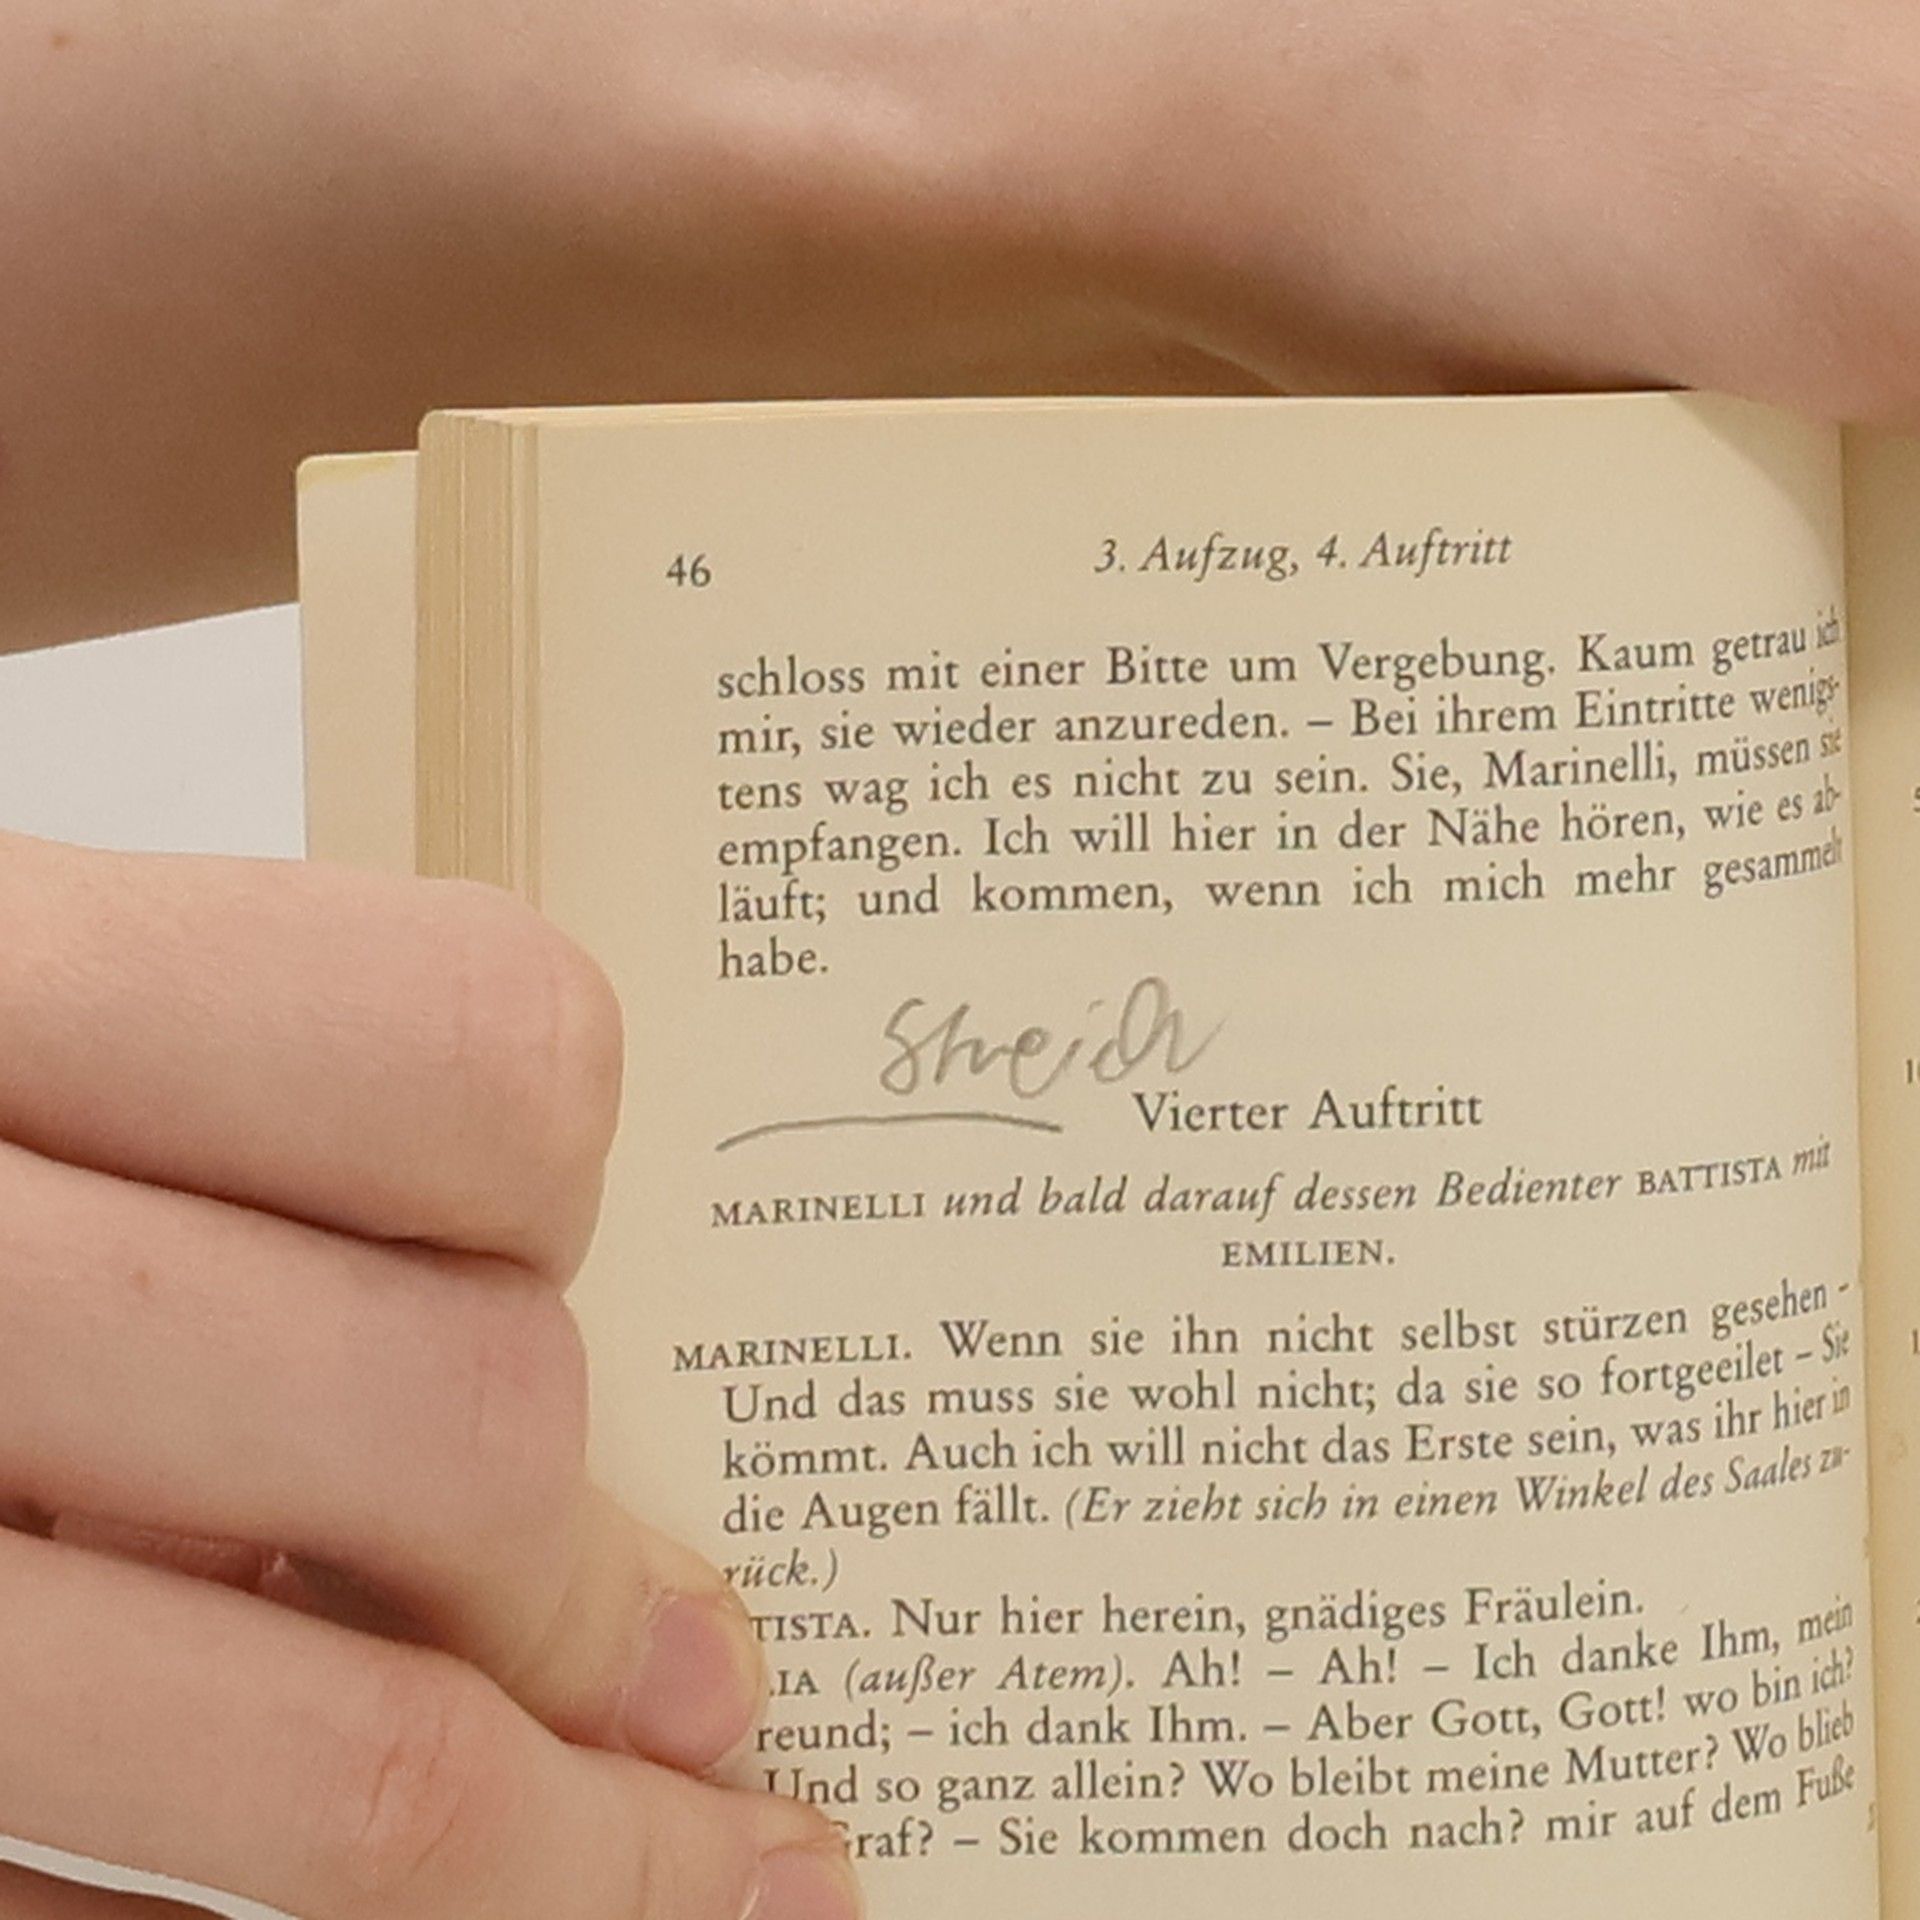 46
3. Aufzug, 4. Auftritt
schloss mit einer Bitte um Vergebung. Kaum getrau ich
mir, sie wieder anzureden. – Bei ihrem Eintritte wenigs-
tens wag ich es nicht zu sein. Sie, Marinelli, müssen sie
empfangen. Ich will hier in der Nähe hören, wie es ab-
läuft; und kommen, wenn ich mich mehr gesammelt
habe.
Streich
Vierter Auftritt
MARINELLI und bald darauf dessen Bedienter BATTISTA mit
EMILIEN.
MARINELLI. Wenn sie ihn nicht selbst stürzen gesehen –
Und das muss sie wohl nicht; da sie so fortgeeilet – Sie
kömmt. Auch ich will nicht das Erste sein, was ihr hier in
die Augen fällt. (Er zieht sich in einen Winkel des Saales zu-
rück.)
TISTA. Nur hier herein, gnädiges Fräulein.
LIA (außer Atem). Ah! – Ah! – Ich danke Ihm, mein
reund; – ich dank Ihm. – Aber Gott, Gott! wo bin ich?
Und so ganz allein? Wo bleibt meine Mutter? Wo blieb
Graf? – Sie kommen doch nach? mir auf dem Fuße